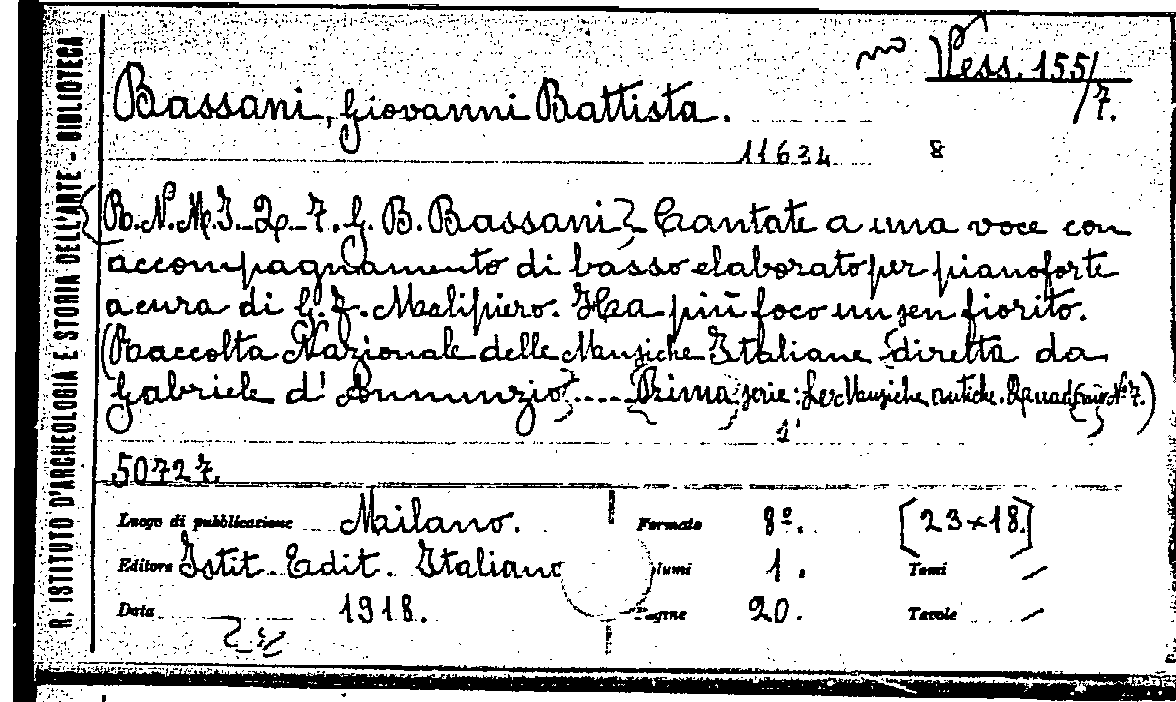 R. ISTITUTO D'ARCHEOLOGIA E STORIA DELL'ARTE - BIBLIOTECA
no Vess. 155/7.
Bassani, Giovanni Battista.
11634 8
R.N.M.I. - Q. - 7. G. B. Bassani. Cantate a una voce con
accompagnamento di basso elaborato per pianoforte
a cura di G. F. Malipiero. Ha più foco un sen fiorito.
(Raccolta Nazionale delle Musiche Italiane diretta da
Gabriele d'Annunzio..... Prima serie: Le Musiche antiche. Quaderno N° 7.)
50727.
Luogo di pubblicazione Milano. Formato 8º. [23×18]
Editore Istit. Edit. Italiano Volumi 1. Tomi /
Data 1918. Pagine 20. Tavole /